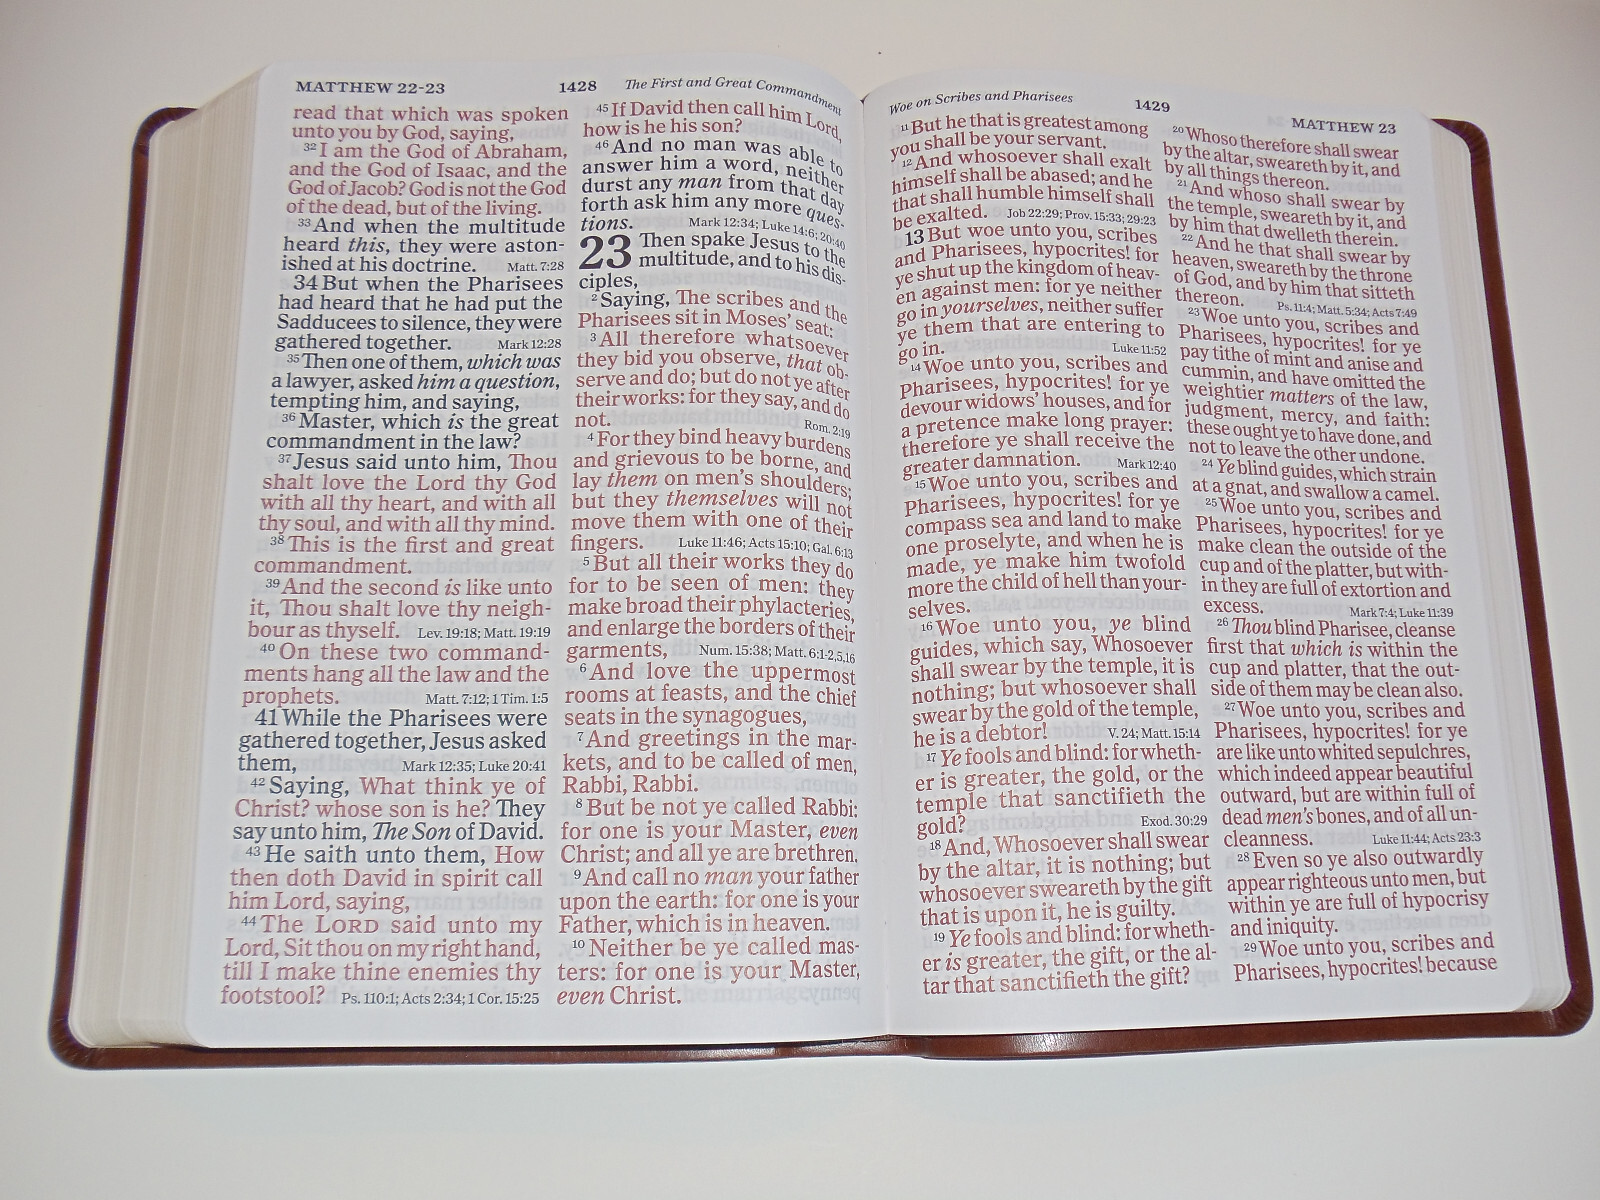 MATTHEW 22-23
1428
The First and Great Commandment
read that which was spoken
unto you by God, saying,
32 I am the God of Abraham,
and the God of Isaac, and the
God of Jacob? God is not the God
of the dead, but of the living.
33 And when the multitude
heard this, they were aston-
ished at his doctrine. Matt. 7:28
34 But when the Pharisees
had heard that he had put the
Sadducees to silence, they were
gathered together. Mark 12:28
35 Then one of them, which was
a lawyer, asked him a question,
tempting him, and saying,
36 Master, which is the great
commandment in the law?
37 Jesus said unto him, Thou
shalt love the Lord thy God
with all thy heart, and with all
thy soul, and with all thy mind.
38 This is the first and great
commandment.
39 And the second is like unto
it, Thou shalt love thy neigh-
bour as thyself. Lev. 19:18; Matt. 19:19
40 On these two command-
ments hang all the law and the
prophets. Matt. 7:12; 1 Tim. 1:5
41 While the Pharisees were
gathered together, Jesus asked
them, Mark 12:35; Luke 20:41
42 Saying, What think ye of
Christ? whose son is he? They
say unto him, The Son of David.
43 He saith unto them, How
then doth David in spirit call
him Lord, saying,
44 The LORD said unto my
Lord, Sit thou on my right hand,
till I make thine enemies thy
footstool? Ps. 110:1; Acts 2:34; 1 Cor. 15:25
45 If David then call him Lord,
how is he his son?
46 And no man was able to
answer him a word, neither
durst any man from that day
forth ask him any more ques-
tions. Mark 12:34; Luke 14:6; 20:40
23 Then spake Jesus to the
multitude, and to his dis-
ciples,
2 Saying, The scribes and the
Pharisees sit in Moses' seat:
3 All therefore whatsoever
they bid you observe, that ob-
serve and do; but do not ye after
their works: for they say, and do
not. Rom. 2:19
4 For they bind heavy burdens
and grievous to be borne, and
lay them on men's shoulders;
but they themselves will not
move them with one of their
fingers. Luke 11:46; Acts 15:10; Gal. 6:13
5 But all their works they do
for to be seen of men: they
make broad their phylacteries,
and enlarge the borders of their
garments, Num. 15:38; Matt. 6:1-2,5,16
6 And love the uppermost
rooms at feasts, and the chief
seats in the synagogues,
7 And greetings in the mar-
kets, and to be called of men,
Rabbi, Rabbi.
8 But be not ye called Rabbi:
for one is your Master, even
Christ; and all ye are brethren.
9 And call no man your father
upon the earth: for one is your
Father, which is in heaven.
10 Neither be ye called mas-
ters: for one is your Master,
even Christ.
Woe on Scribes and Pharisees
1429
MATTHEW 23
11 But he that is greatest among
you shall be your servant.
12 And whosoever shall exalt
himself shall be abased; and he
that shall humble himself shall
be exalted. Job 22:29; Prov. 15:33; 29:23
13 But woe unto you, scribes
and Pharisees, hypocrites! for
ye shut up the kingdom of heav-
en against men: for ye neither
go in yourselves, neither suffer
ye them that are entering to
go in. Luke 11:52
14 Woe unto you, scribes and
Pharisees, hypocrites! for ye
devour widows' houses, and for
a pretence make long prayer:
therefore ye shall receive the
greater damnation. Mark 12:40
15 Woe unto you, scribes and
Pharisees, hypocrites! for ye
compass sea and land to make
one proselyte, and when he is
made, ye make him twofold
more the child of hell than your-
selves.
16 Woe unto you, ye blind
guides, which say, Whosoever
shall swear by the temple, it is
nothing; but whosoever shall
swear by the gold of the temple,
he is a debtor! V. 24; Matt. 15:14
17 Ye fools and blind: for wheth-
er is greater, the gold, or the
temple that sanctifieth the
gold? Exod. 30:29
18 And, Whosoever shall swear
by the altar, it is nothing; but
whosoever sweareth by the gift
that is upon it, he is guilty.
19 Ye fools and blind: for wheth-
er is greater, the gift, or the al-
tar that sanctifieth the gift?
20 Whoso therefore shall swear
by the altar, sweareth by it, and
by all things thereon.
21 And whoso shall swear by
the temple, sweareth by it, and
by him that dwelleth therein.
22 And he that shall swear by
heaven, sweareth by the throne
of God, and by him that sitteth
thereon. Ps. 11:4; Matt. 5:34; Acts 7:49
23 Woe unto you, scribes and
Pharisees, hypocrites! for ye
pay tithe of mint and anise and
cummin, and have omitted the
weightier matters of the law,
judgment, mercy, and faith:
these ought ye to have done, and
not to leave the other undone.
24 Ye blind guides, which strain
at a gnat, and swallow a camel.
25 Woe unto you, scribes and
Pharisees, hypocrites! for ye
make clean the outside of the
cup and of the platter, but with-
in they are full of extortion and
excess. Mark 7:4; Luke 11:39
26 Thou blind Pharisee, cleanse
first that which is within the
cup and platter, that the out-
side of them may be clean also.
27 Woe unto you, scribes and
Pharisees, hypocrites! for ye
are like unto whited sepulchres,
which indeed appear beautiful
outward, but are within full of
dead men's bones, and of all un-
cleanness. Luke 11:44; Acts 23:3
28 Even so ye also outwardly
appear righteous unto men, but
within ye are full of hypocrisy
and iniquity.
29 Woe unto you, scribes and
Pharisees, hypocrites! because